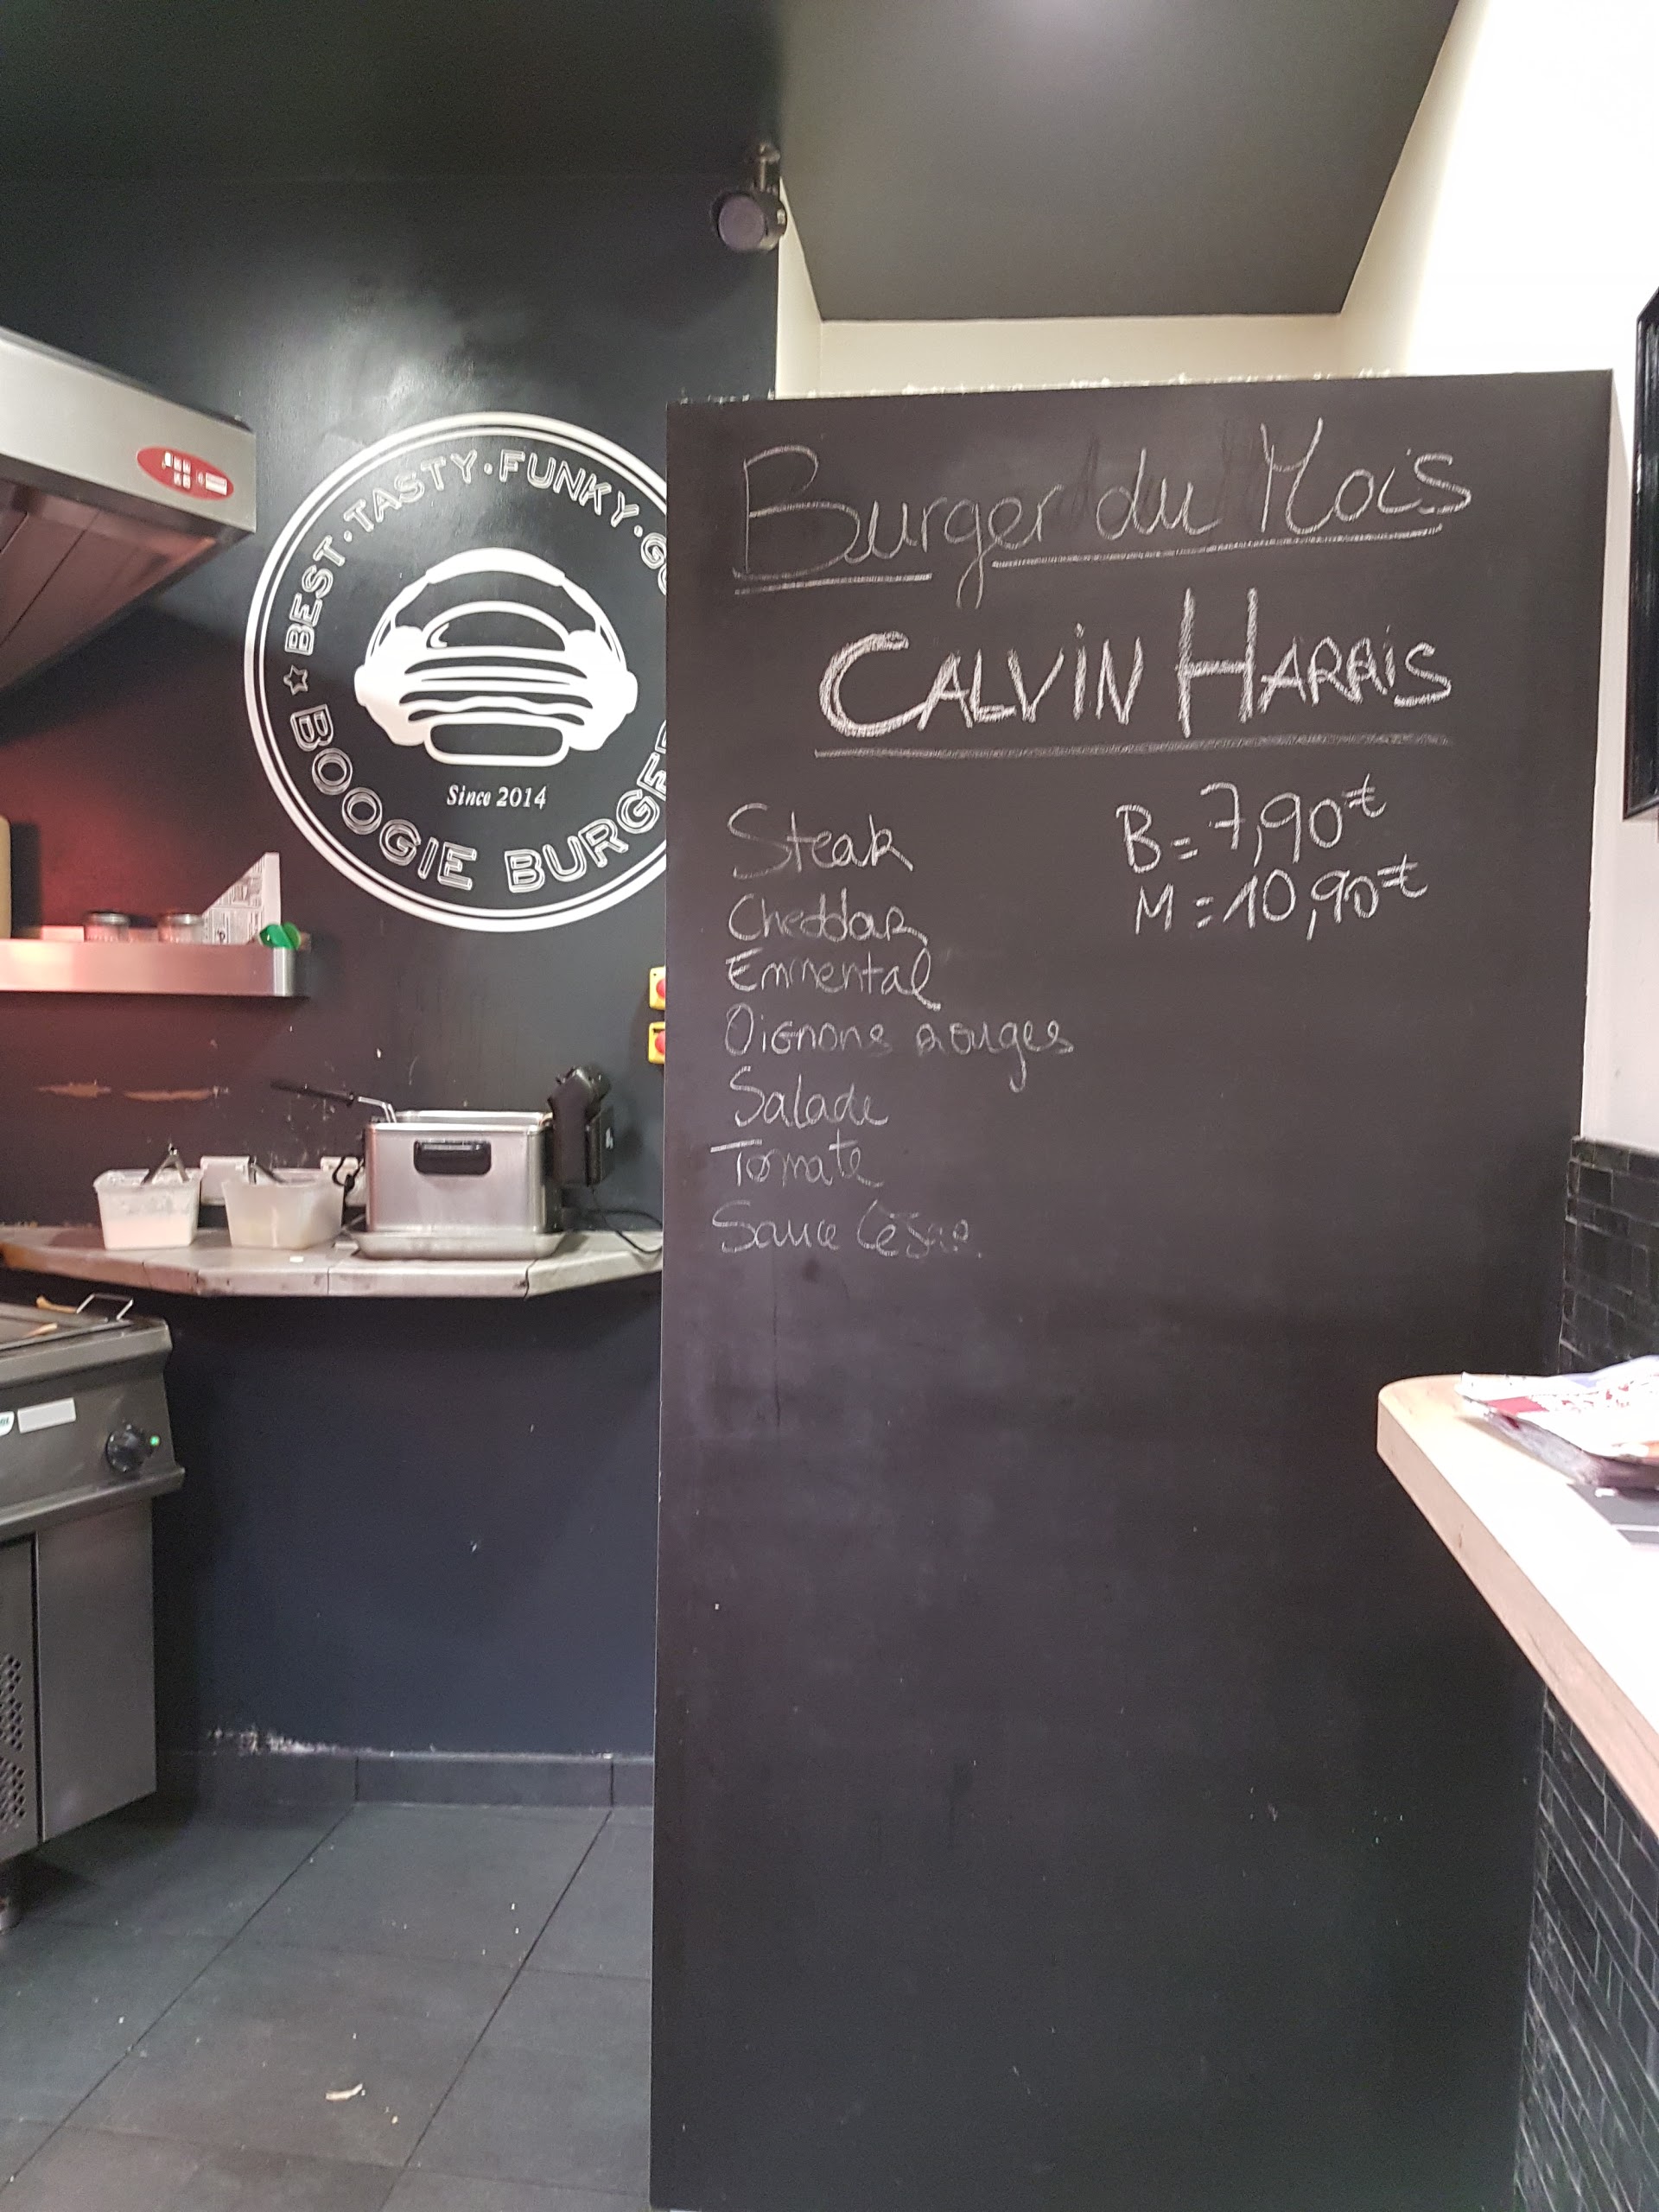 BEST · TASTY · FUNKY ·
BOOGIE BURGER
Since 2014
Burger du Mois
CALVIN HARRIS
Steak
B = 7,90€
Cheddar
M = 10,90€
Emmental
Oignons rouges
Salade
Tomate
Sauce César